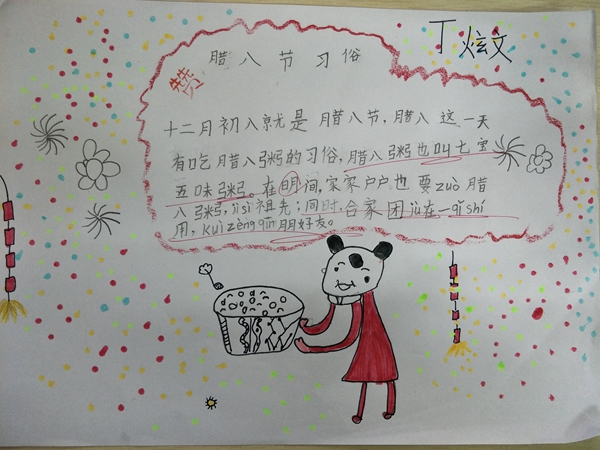 丁炫文
腊八节习俗
赞
十二月初八就是腊八节，腊八这一天
有吃腊八粥的习俗，腊八粥也叫七宝
五味粥。在明间，家家户户也要zuò腊
八粥，jìsì祖先；同时，合家团jù在一qǐshí
用，kuìzèngqīn朋好友。